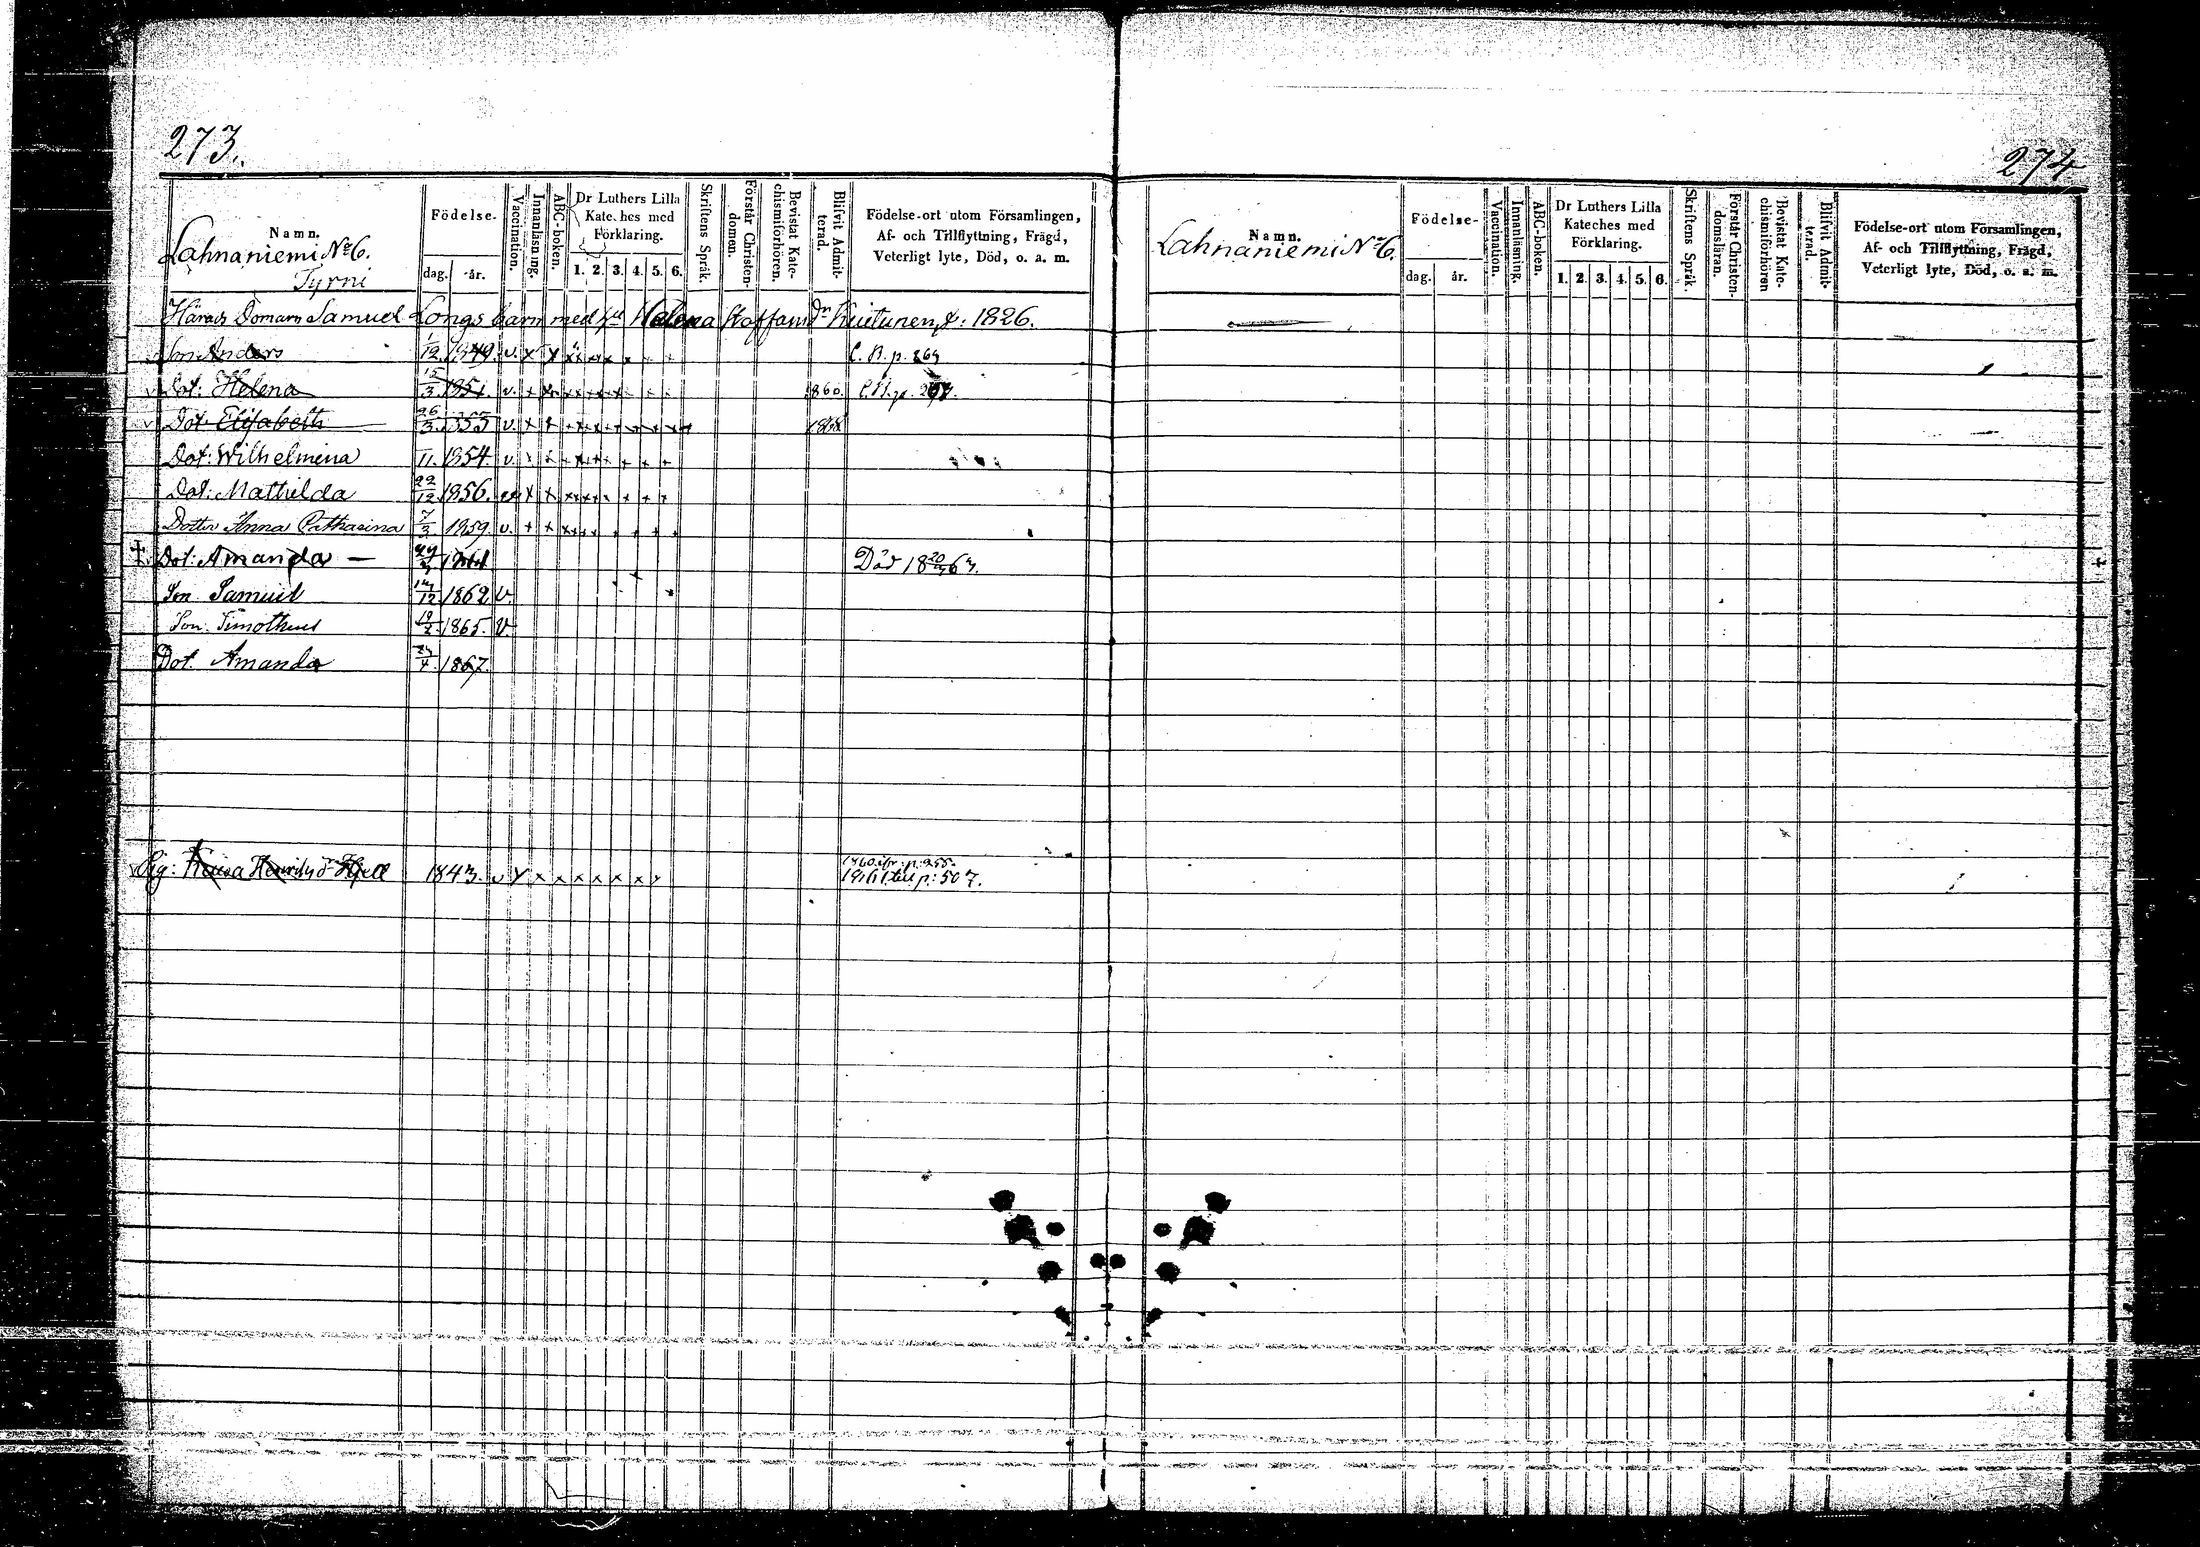 273.
Namn.
Lahnaniemi No 6.
Tyrni
Födelse-
dag. år.
Vaccination.
Innanläsning.
ABC-boken.
Dr Luthers Lilla
Kateches med
Förklaring.
1. 2. 3. 4. 5. 6.
Skriftens Språk.
Förstår Christen-
domen.
Bevistat Kate-
chismiförhören.
Blifvit Admit-
terad.
Födelse-ort utom Församlingen,
Af- och Tillflyttning, Frägd,
Veterligt lyte, Död, o. a. m.
Härads Domarn Samuel Longs barn med Helena Staffansdr Keitunen, f: 1826.
Son Anders 1/12 1849. v. x x x x x x x x x
Dot: Helena 15/3 1851. v. x x x x x x x x x 1860.
Dot. Elisabeth 26/3 v. x x x x x x x x
Dot: Wilhelmina /11. 1854. v. x x x x x x x x
Dot: Mathilda 22/12 1856. x x x x x x x x
Dotter Anna Catharina 7/3 1859. v. x x x x x x x x
Dot: Amanda — Död 18
Son Samuel /12 1862 v.
Son. Timotheus 19/2 1865. v.
Dot. Amanda /4 1867.
Pig: 1843. v x x x x x x x
till p: 507.
274
Namn.
Lahnaniemi No 6.
Födelse-
dag. år.
Vaccination.
Innanläsning.
ABC-boken.
Dr Luthers Lilla
Kateches med
Förklaring.
1. 2. 3. 4. 5. 6.
Skriftens Språk.
Förstår Christen-
domsläran.
Bevistat Kate-
chismiförhören
Blifvit Admit-
terad.
Födelse-ort utom Församlingen,
Af- och Tillflyttning, Frägd,
Veterligt lyte, Död, o. a. m.